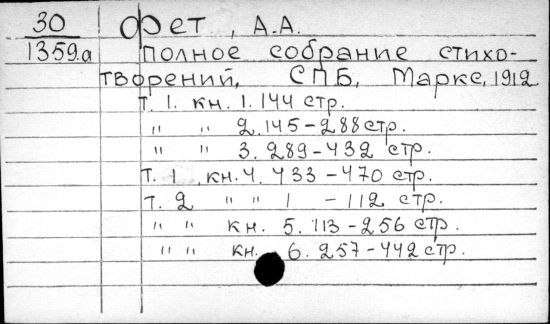 30 Фет, А.А.
1359.а Полное собрание стихо-
творений, СПБ, Маркс, 1912
т. 1. кн. 1. 144 стр.
" " 2. 145-288 стр.
" " 3. 289-432 стр.
т. 1 кн. 4. 433-470 стр.
т. 2 " " 1 - 112 стр.
" " кн. 5. 113-256 стр.
" " кн. 6. 257-442 стр.